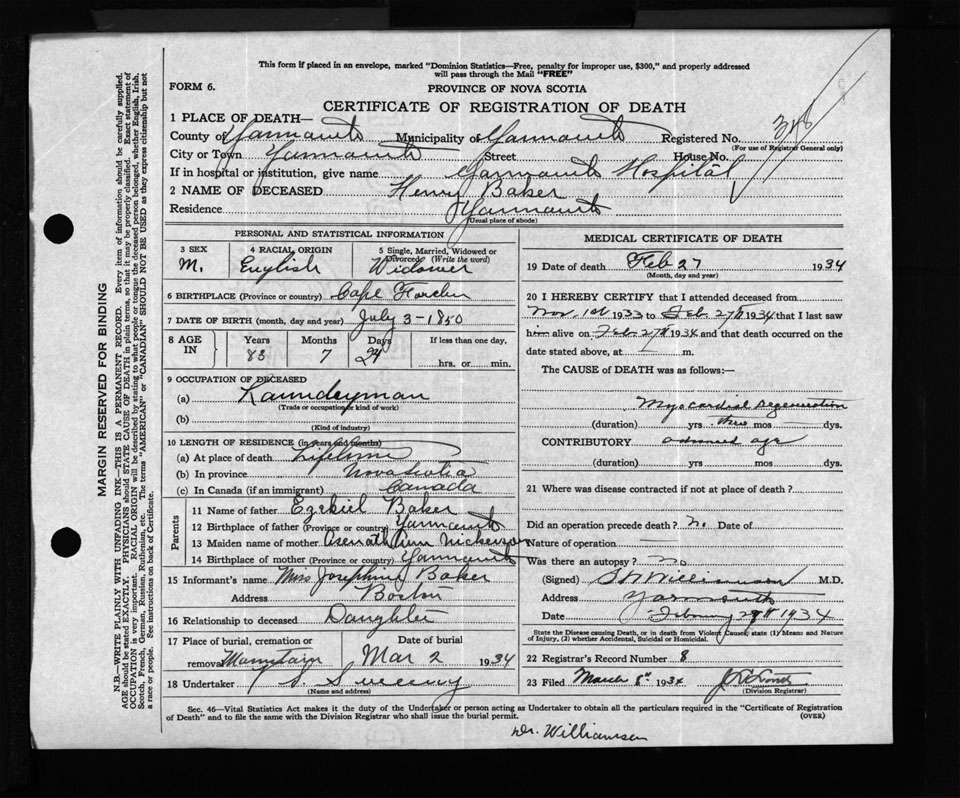 This form if placed in an envelope, marked "Dominion Statistics—Free, penalty for improper use, $300," and properly addressed
will pass through the Mail "FREE"
FORM 6.
PROVINCE OF NOVA SCOTIA
CERTIFICATE OF REGISTRATION OF DEATH
1 PLACE OF DEATH—
County of Yarmouth Municipality of Yarmouth Registered No.
(For use of Registrar General only)
City or Town Yarmouth Street House No.
If in hospital or institution, give name Yarmouth Hospital
2 NAME OF DECEASED Henry Baker
Residence Yarmouth
(Usual place of abode)
PERSONAL AND STATISTICAL INFORMATION
3 SEX 4 RACIAL ORIGIN 5 Single, Married, Widowed or
Divorced (Write the word)
M. English Widower
6 BIRTHPLACE (Province or country) Cape
7 DATE OF BIRTH (month, day and year) July 3-1850
8 AGE IN Years Months Days If less than one day,
83 7 24 hrs. or min.
9 OCCUPATION OF DECEASED
(a) Laundeyman
(Trade or occupation or kind of work)
(b)
(Kind of industry)
10 LENGTH OF RESIDENCE (in years and months)
(a) At place of death Lifetime
(b) In province Nova Scotia
(c) In Canada (if an immigrant) Canada
Parents
11 Name of father Ezekiel Baker
12 Birthplace of father (Province or country) Yarmouth
13 Maiden name of mother Asenath Ann Nickerson
14 Birthplace of mother (Province or country) Yarmouth
15 Informant's name Miss Josephine Baker
Address Boston
16 Relationship to deceased Daughter
17 Place of burial, cremation or Date of burial
removal Mar 2 1934
18 Undertaker Sweeny
(Name and address)
MEDICAL CERTIFICATE OF DEATH
19 Date of death Feb 27 1934
(Month, day and year)
20 I HEREBY CERTIFY that I attended deceased from
Nov. 1st 1933 to Feb. 27th 1934 that I last saw
him alive on Feb 27th 1934 and that death occurred on the
date stated above, at — m.
The CAUSE of DEATH was as follows:—
Myocardial Degeneration
(duration) yrs. three mos — dys.
CONTRIBUTORY advanced age
(duration) yrs mos dys.
21 Where was disease contracted if not at place of death?
Did an operation precede death? no Date of
Nature of operation —
Was there an autopsy? no
(Signed) Williamson M.D.
Address Yarmouth
Date 1934
State the Disease causing Death, or in death from Violent Causes, state (1) Means and Nature
of Injury, (2) whether Accidental, Suicidal or Homicidal.
22 Registrar's Record Number 8
23 Filed March 8th 1934
(Division Registrar)
Sec. 46—Vital Statistics Act makes it the duty of the Undertaker or person acting as Undertaker to obtain all the particulars required in the "Certificate of Registration
of Death" and to file the same with the Division Registrar who shall issue the burial permit.
(OVER)
Dr. Williamson
MARGIN RESERVED FOR BINDING
N.B.—WRITE PLAINLY WITH UNFADING INK—THIS IS A PERMANENT RECORD. Every item of information should be carefully supplied.
AGE should be stated EXACTLY. PHYSICIANS should STATE CAUSE OF DEATH in plain terms, so that it may be properly classified. Exact statement of
OCCUPATION is very important. RACIAL ORIGIN will be described by stating to what people or tongue the deceased person belonged, whether English, Irish,
Scotch, French, German, Russian, Ruthenian, etc. The terms "AMERICAN" or "CANADIAN" SHOULD NOT BE USED as they express citizenship but not
a race or people. See instructions on back of Certificate.